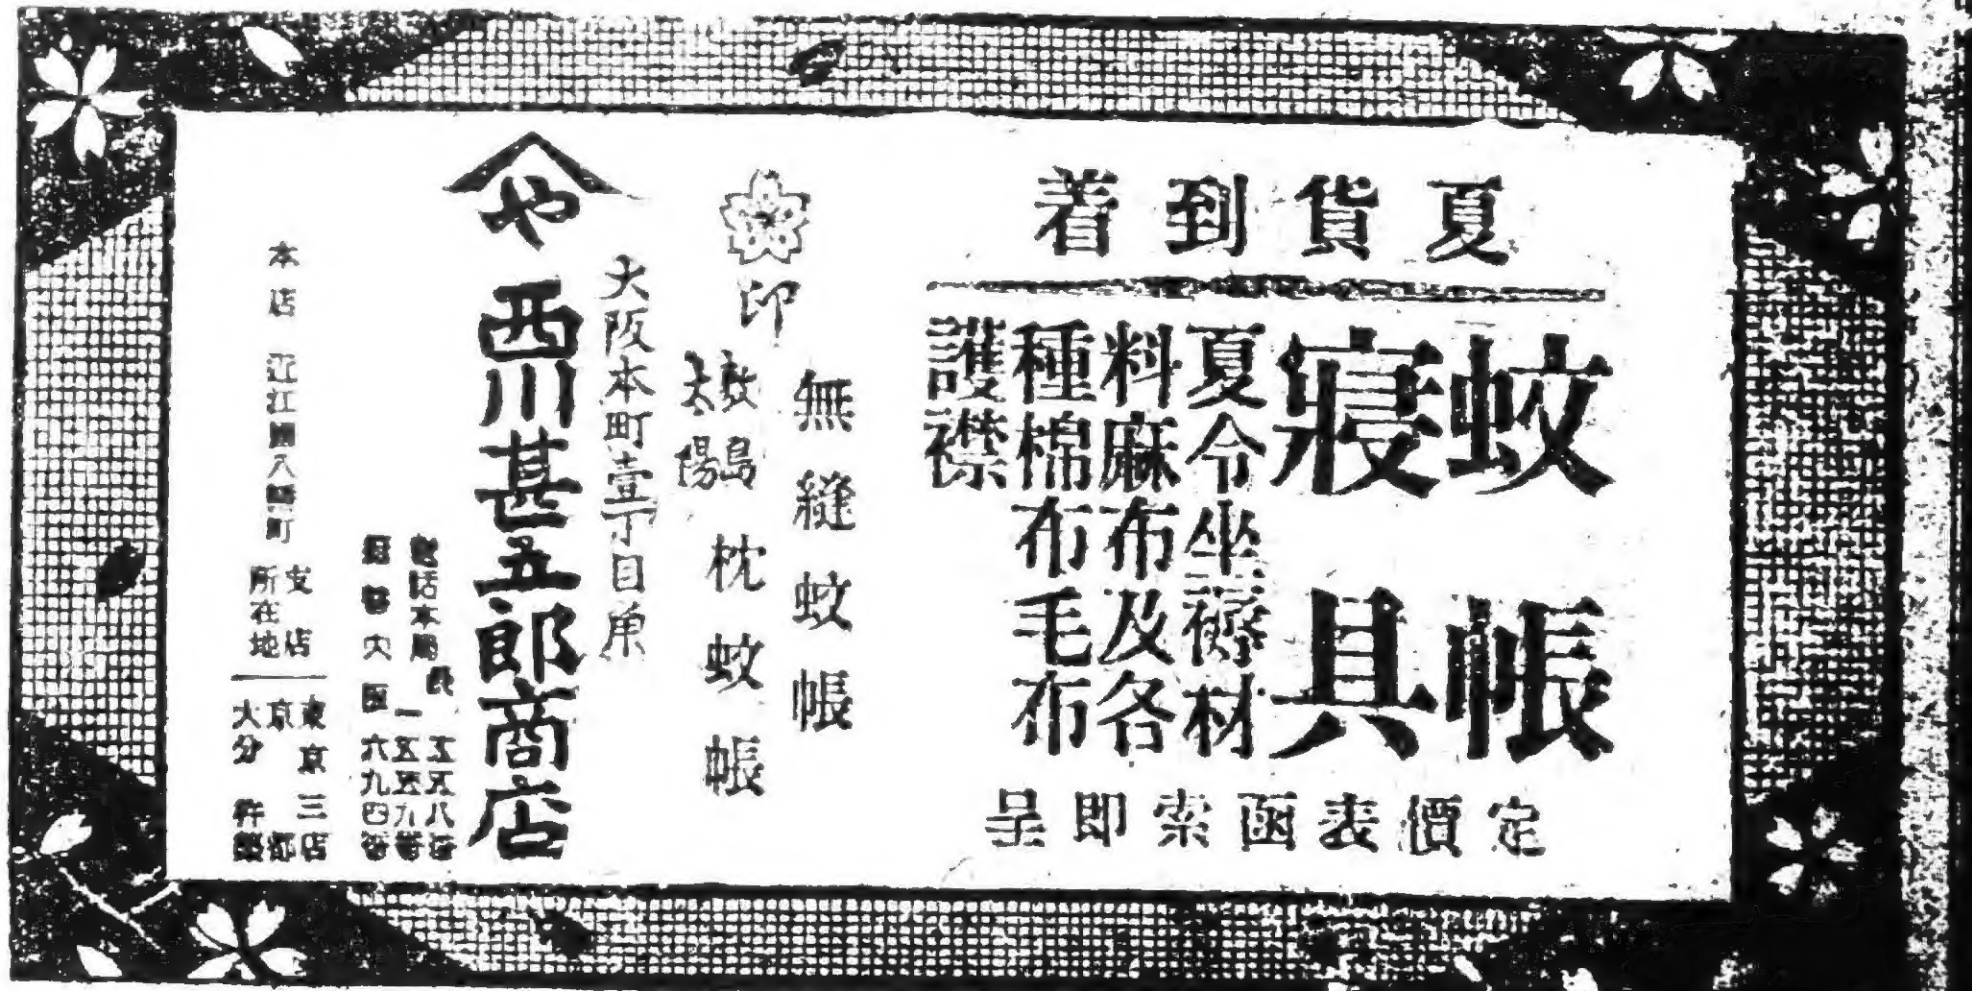 夏貨到着
蚊帳
寝具
夏令坐褥材
料麻布及各
種棉布毛布
護襟
定價表函索即呈
印
無縫蚊帳
敷島
太陽
枕蚊帳
大阪本町壹丁目角
や
西川甚五郎商店
電話本局長
一五五八番
一五五九番
振替大阪六九四番
本店 近江國八幡町
支店所在地
東京三店
京都
大分